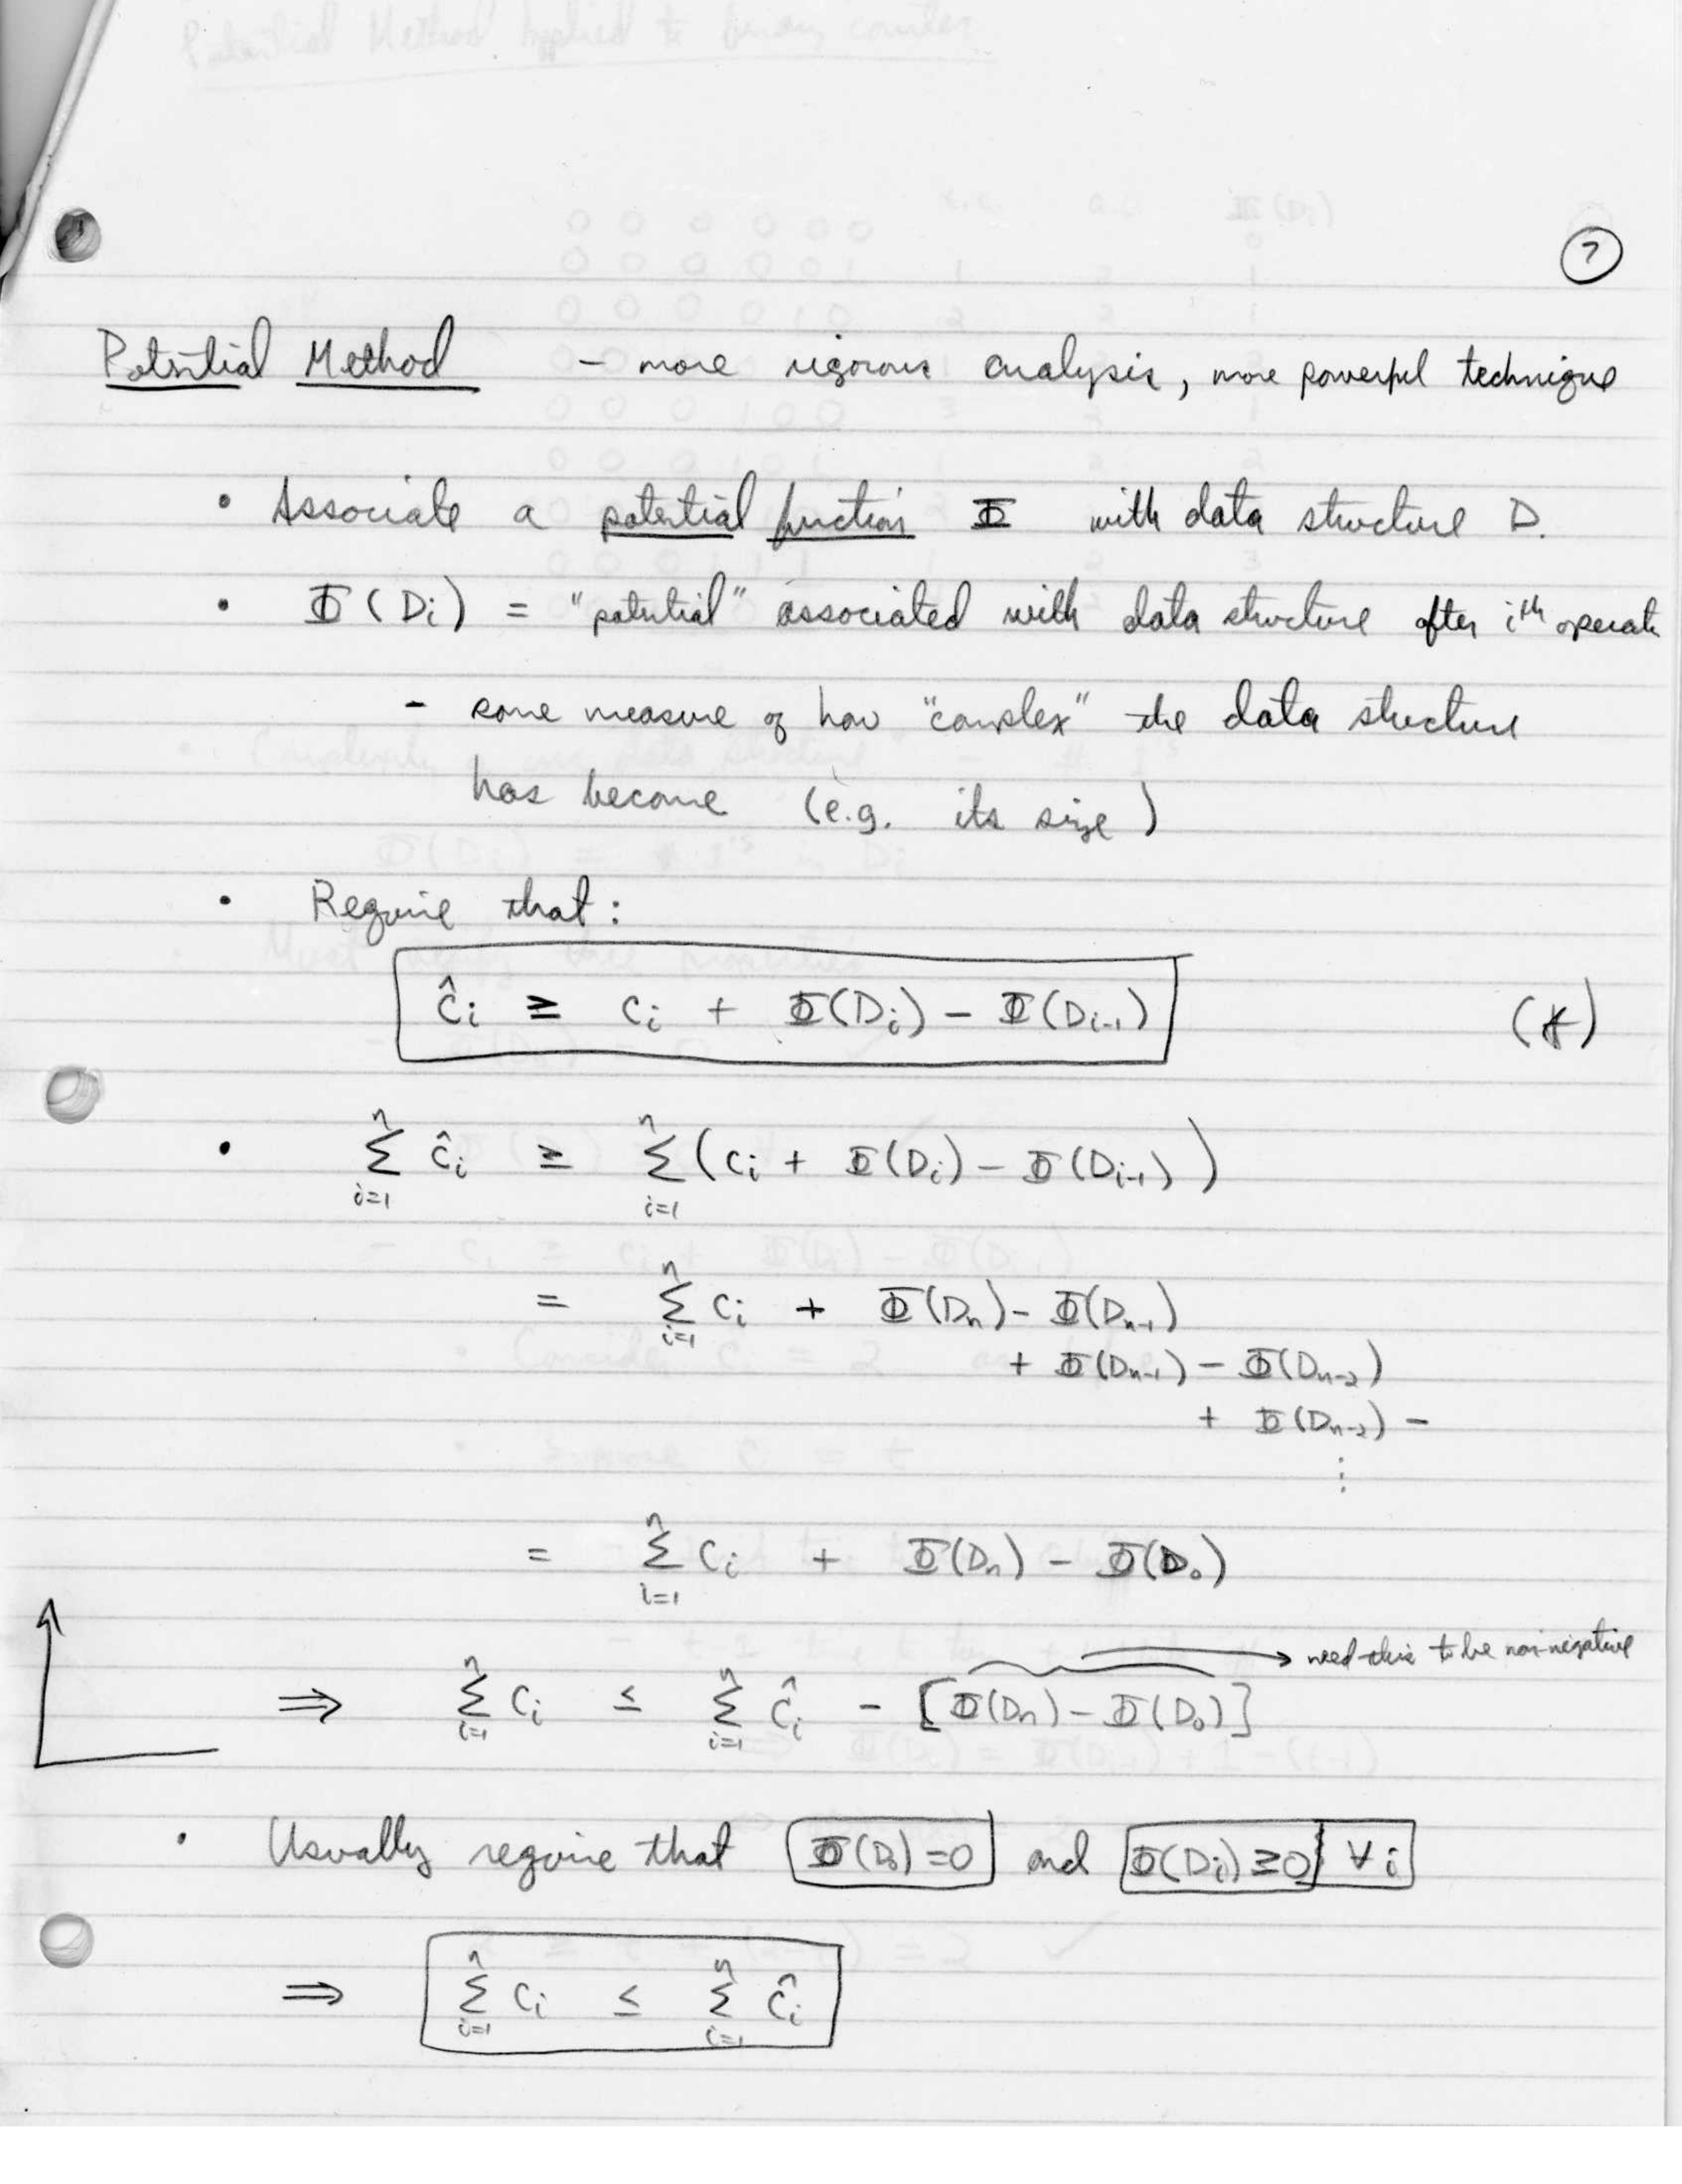 7
Potential Method - more rigorous analysis, more powerful technique
• Associate a potential function Φ with data structure D.
• Φ(Di) = "potential" associated with data structure after ith operat
- some measure of how "complex" the data structure
has become (e.g. its size)
• Require that:
ĉi ≥ ci + Φ(Di) - Φ(Di-1) (*)
• n∑i=1 ĉi ≥ n∑i=1 (ci + Φ(Di) - Φ(Di-1))
= n∑i=1 ci + Φ(Dn) - Φ(Dn-1)
+ Φ(Dn-1) - Φ(Dn-2)
+ Φ(Dn-2) -
⋮
= n∑i=1 ci + Φ(Dn) - Φ(D0)
→ need this to be non-negative
⇒ n∑i=1 ci ≤ n∑i=1 ĉi - [Φ(Dn) - Φ(D0)]
• Usually require that Φ(D0)=0 and Φ(Di)≥0 ∀i
⇒ n∑i=1 ci ≤ n∑i=1 ĉi